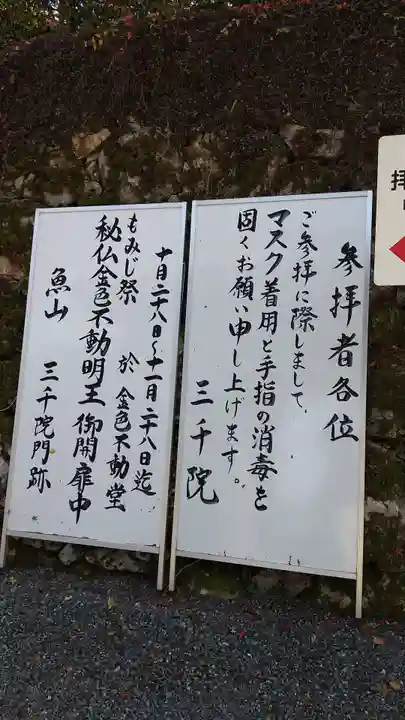 参拝者各位
ご参拝に際しまして、
マスク着用と手指の消毒を
固くお願い申し上げます。
三千院
十月二十八日〜十一月二十八日迄
もみじ祭 於 金色不動堂
秘仏金色不動明王 御開扉中
魚山 三千院門跡
拝